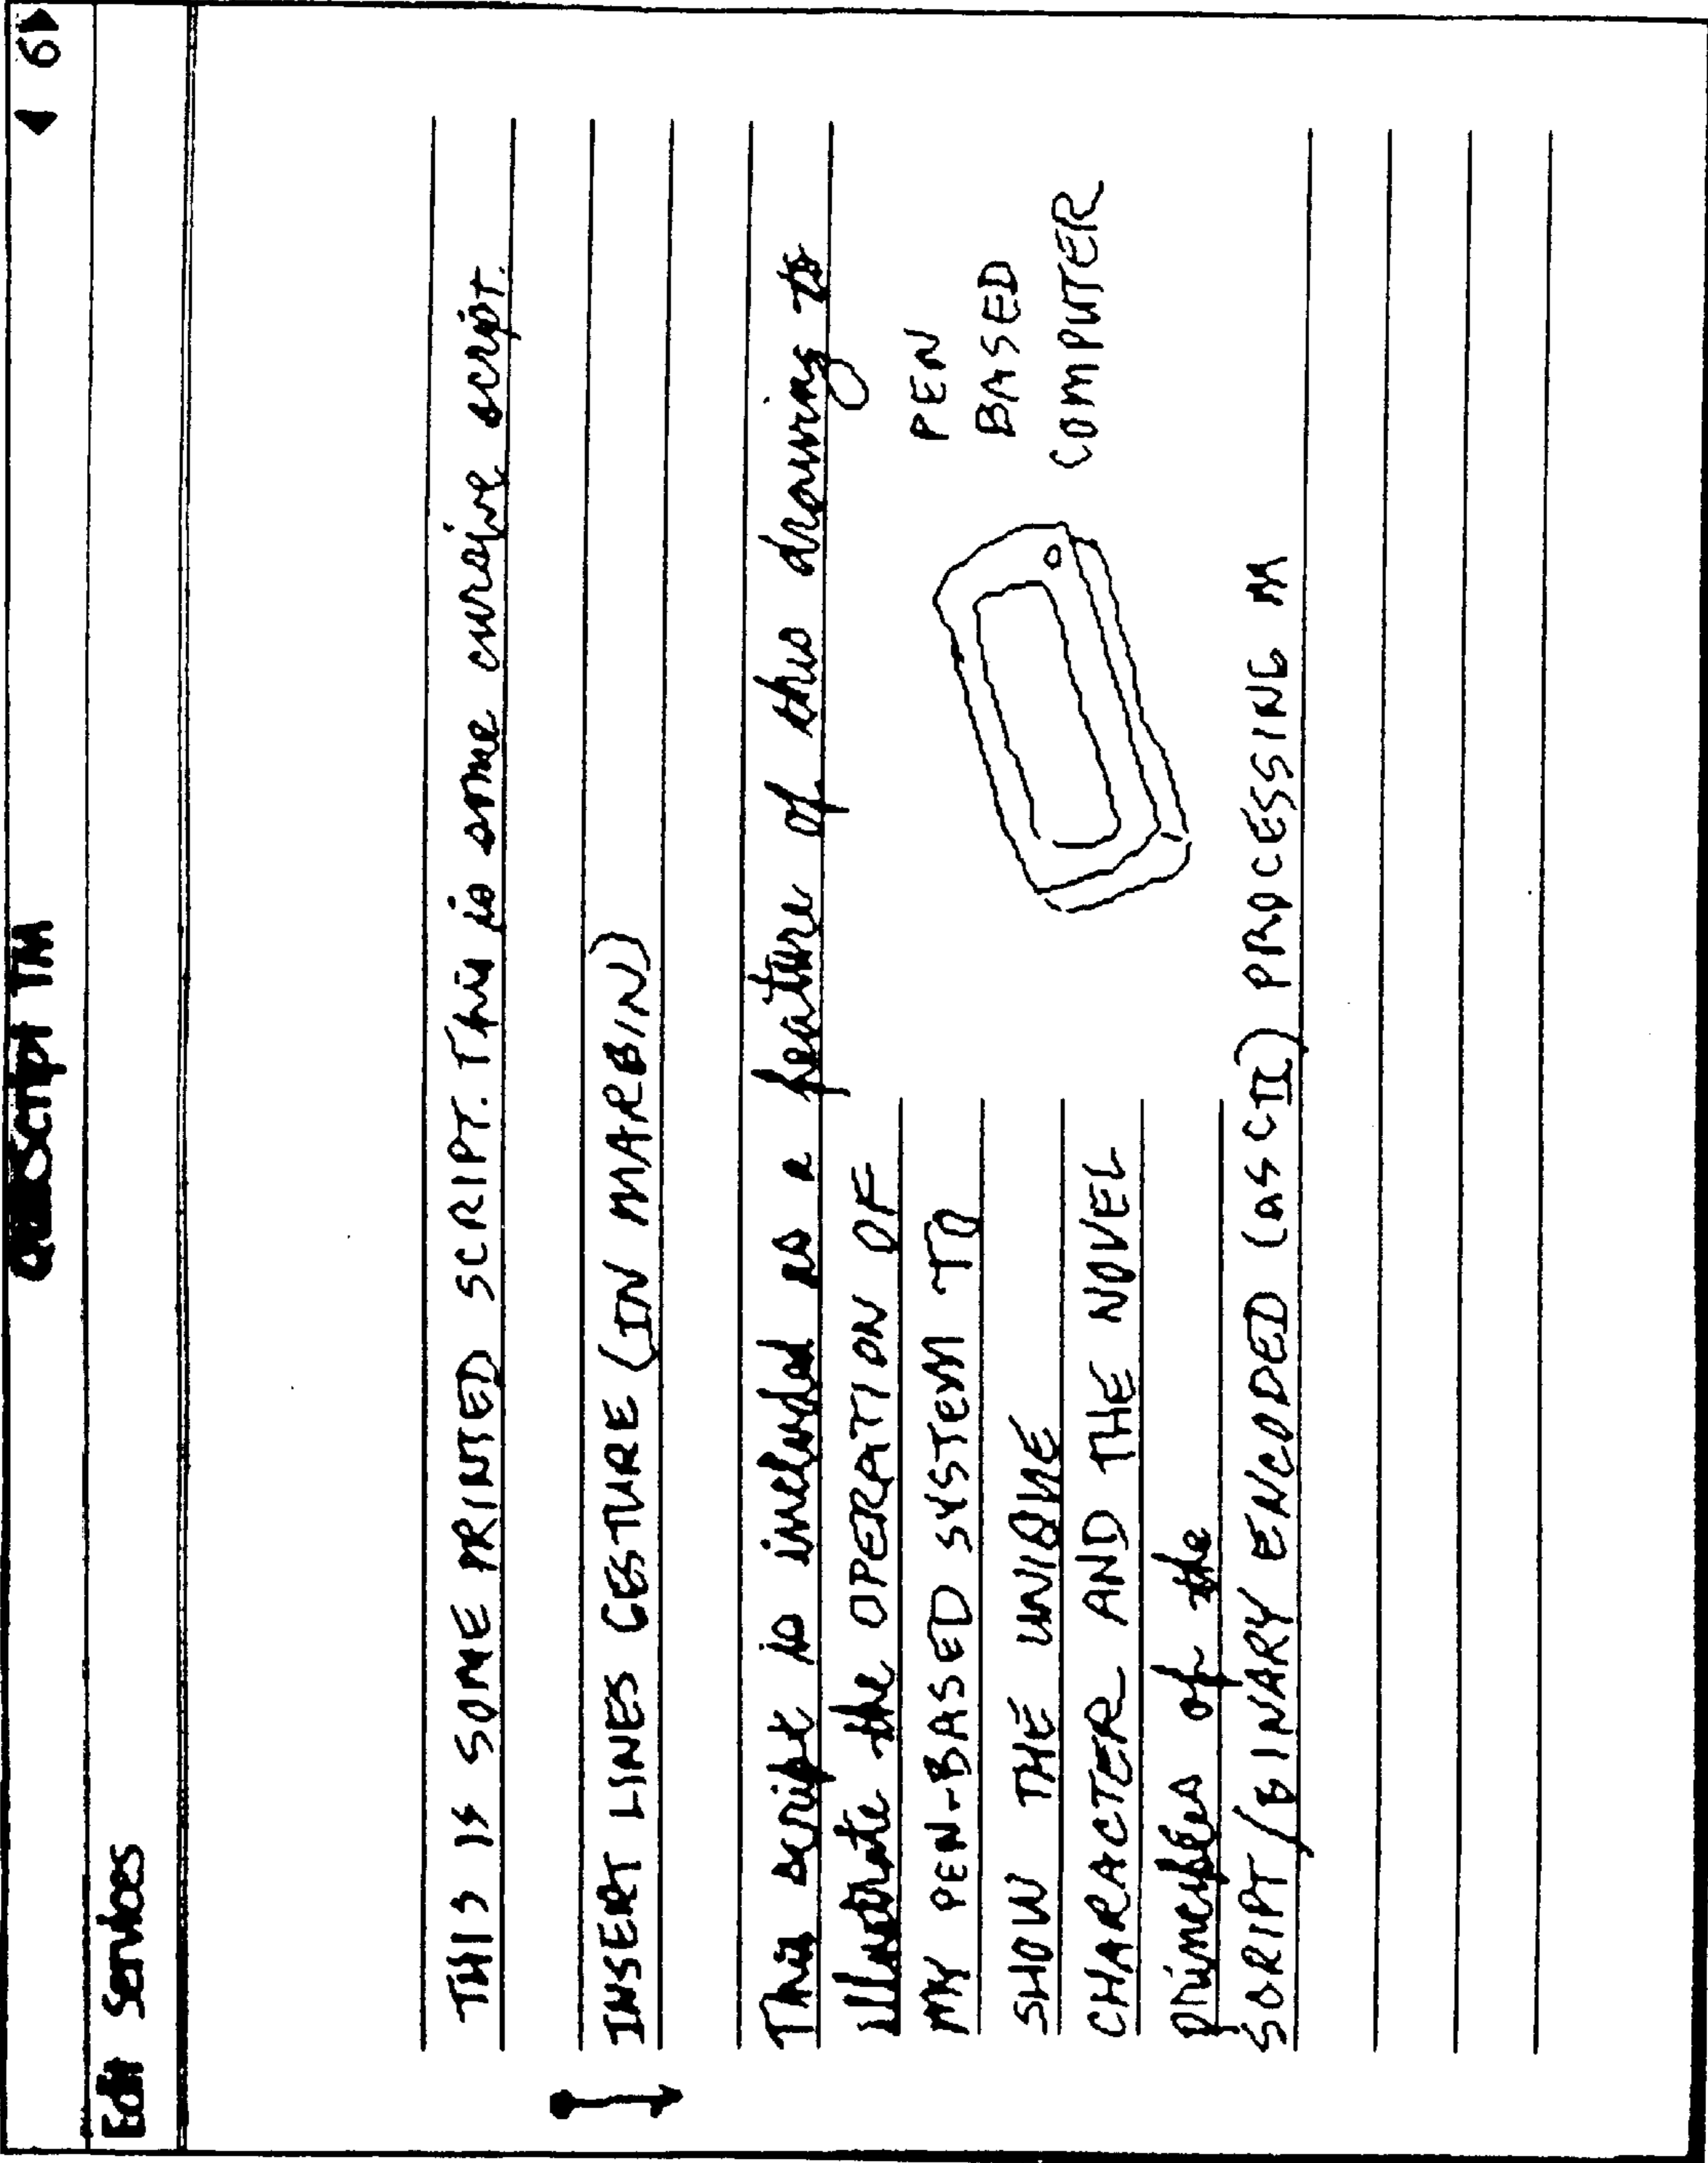 Script TM
◀ 6 ▶
Edit Services
THIS IS SOME PRINTED SCRIPT. This is some cursive script.
INSERT LINES GESTURE (IN MARGIN)
This script is included as a feature of this drawing to
illustrate the OPERATION OF
MY PEN-BASED SYSTEM TO
SHOW THE UNIQUE
CHARACTER AND THE NOVEL
principles of the
SCRIPT/BINARY ENCODED (ASCII) PROCESSING M
PEN
BASED
COMPUTER